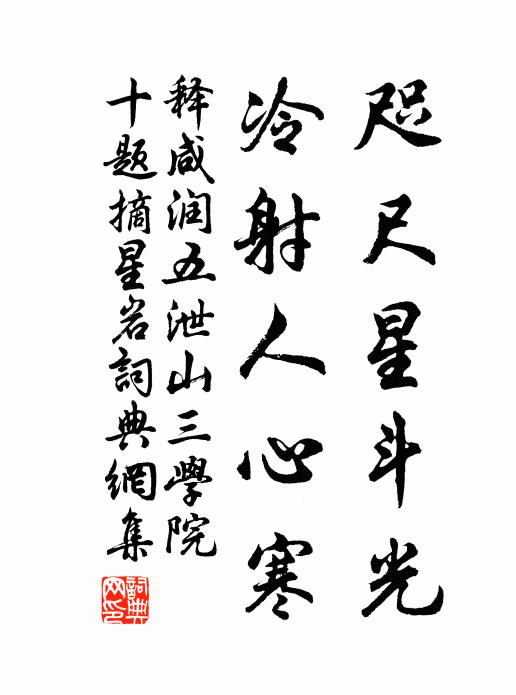 咫尺星斗光
冷射人心寒
释咸润五泄山三學院
十题摘星岩詞典網集
詞典網印